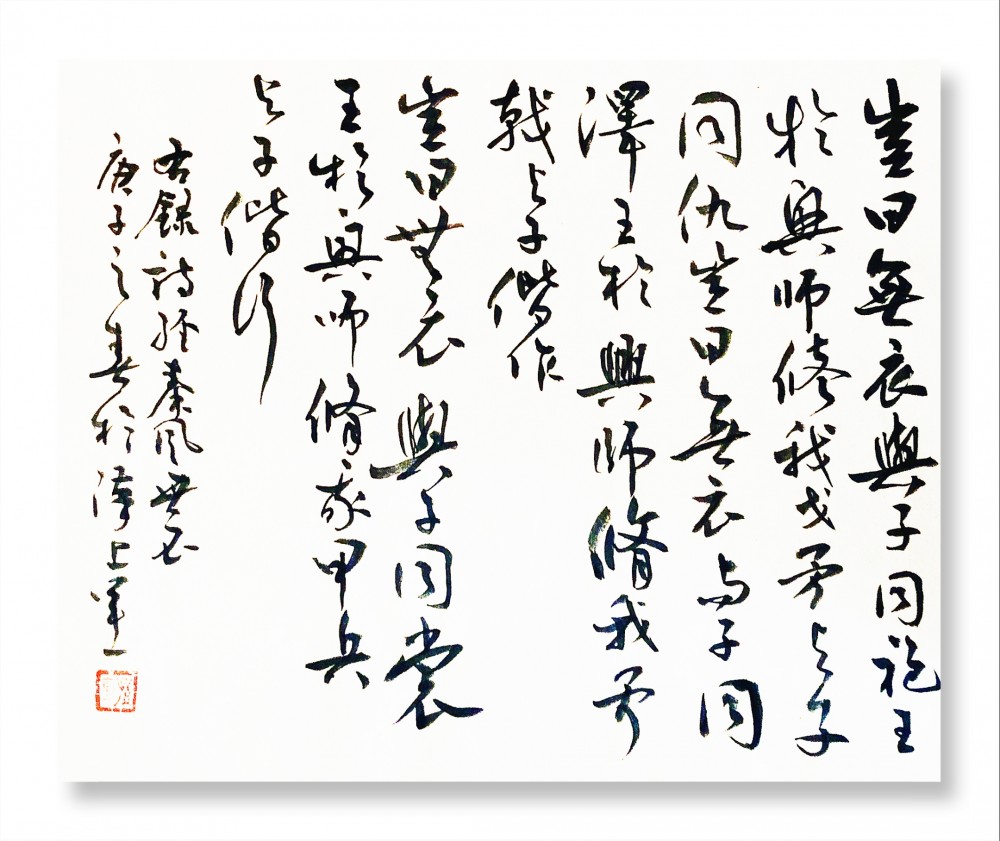 豈曰無衣與子同袍王
於興師修我戈矛与子
同仇豈曰無衣与子同
澤王於興師脩我矛
戟与子偕作
豈曰無衣與子同裳
王於興師脩我甲兵
与子偕行
右錄詩經秦風無衣
庚子之春於津上